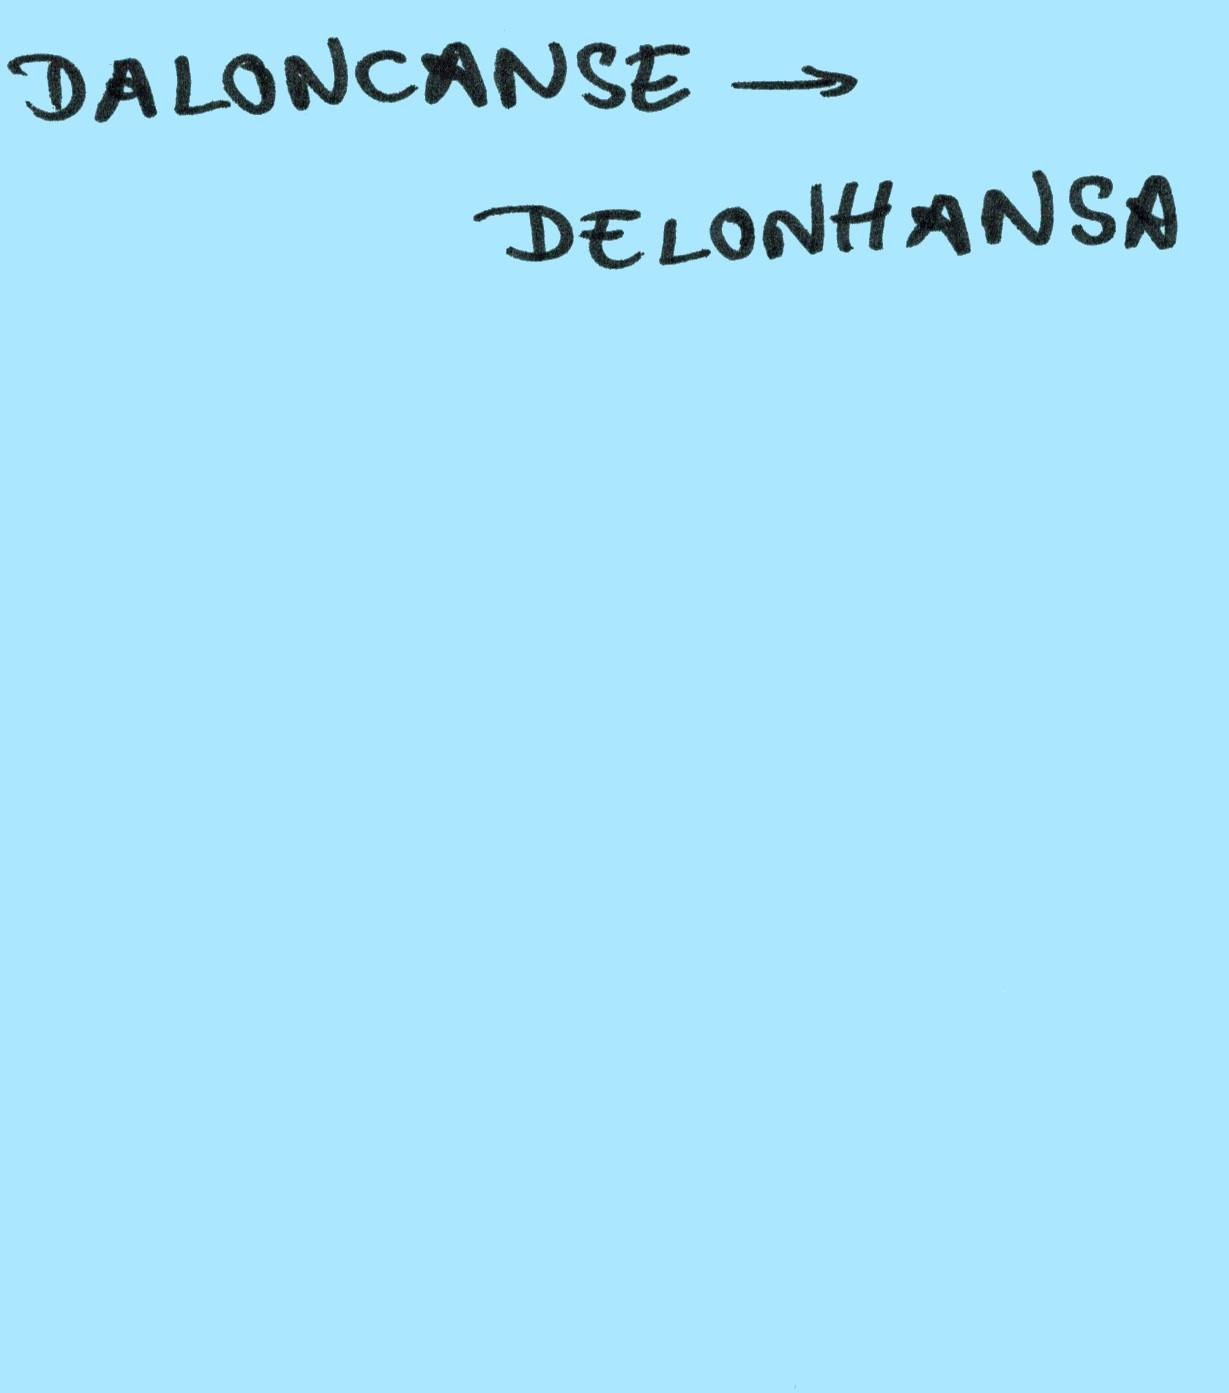 DALONCANSE →
DELONHANSA